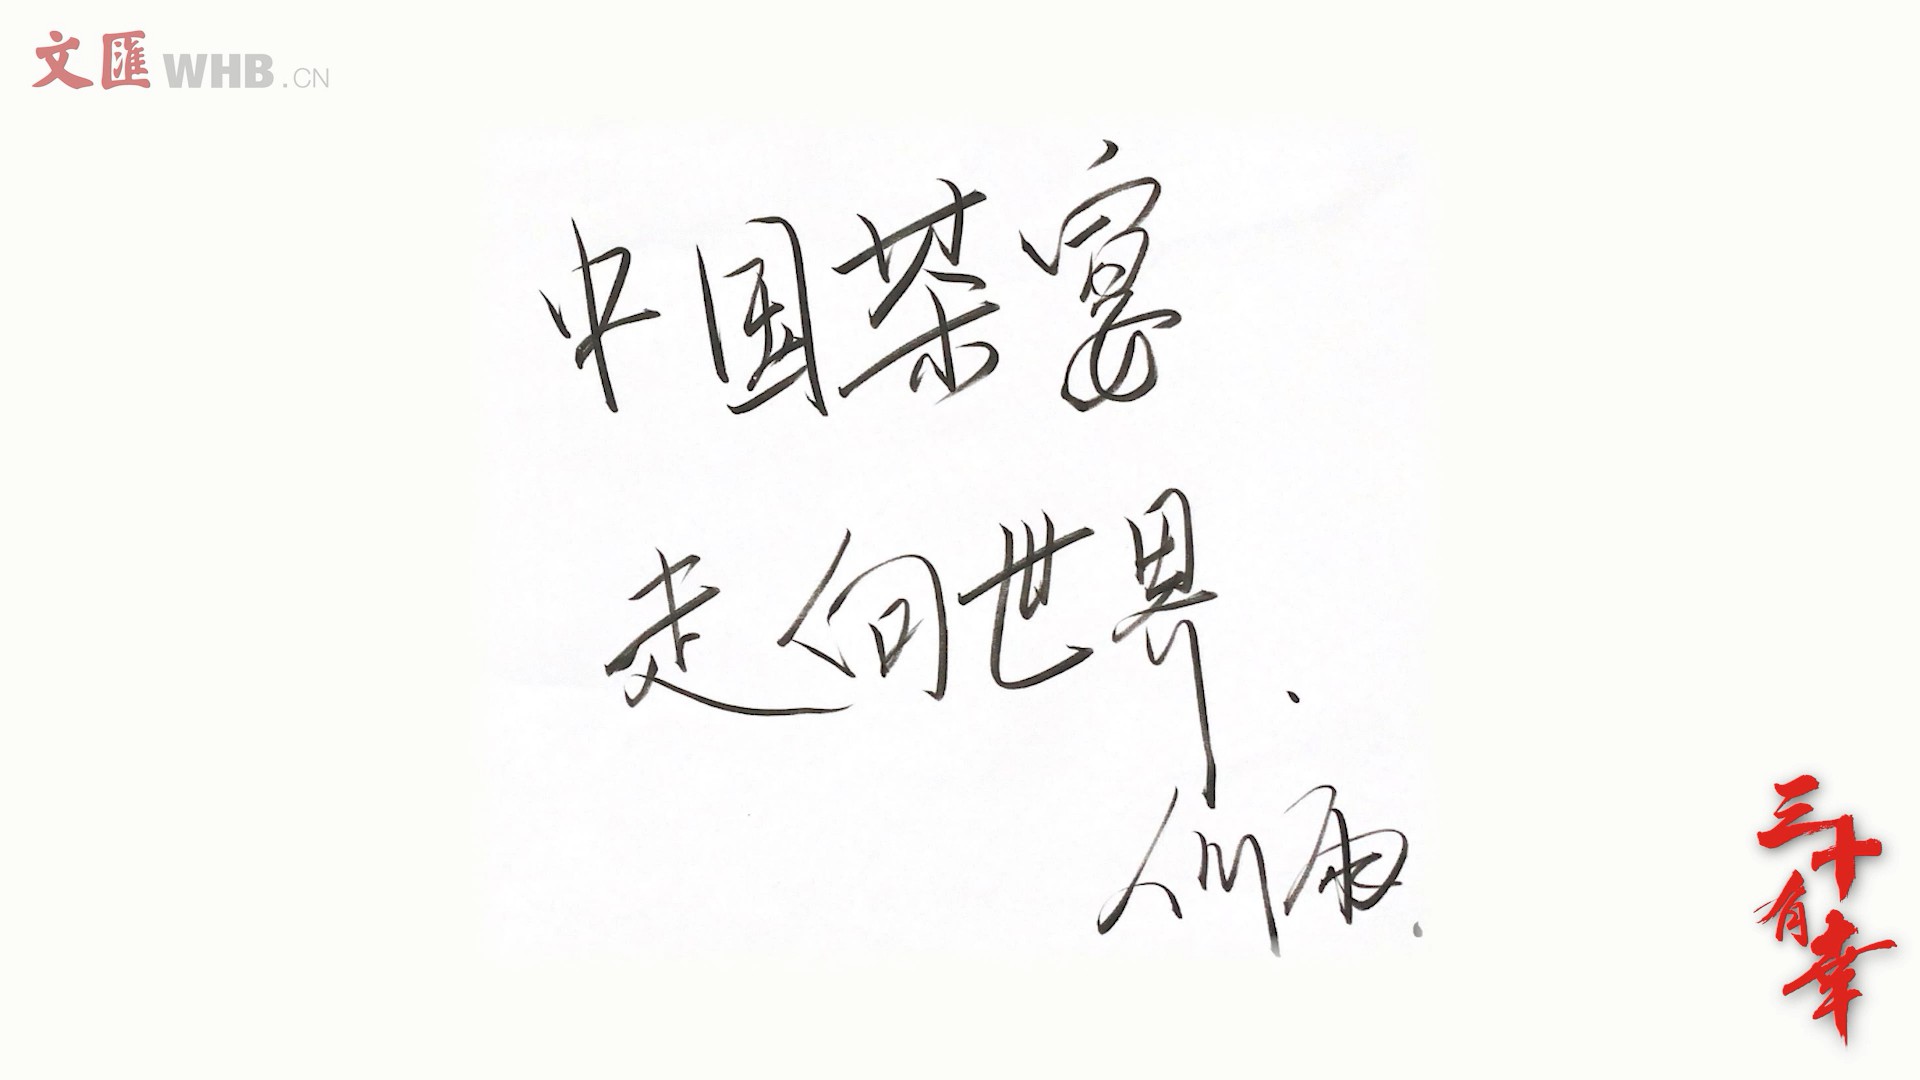 文匯 WHB.CN
中国茶宴
走向世界.
三十有幸